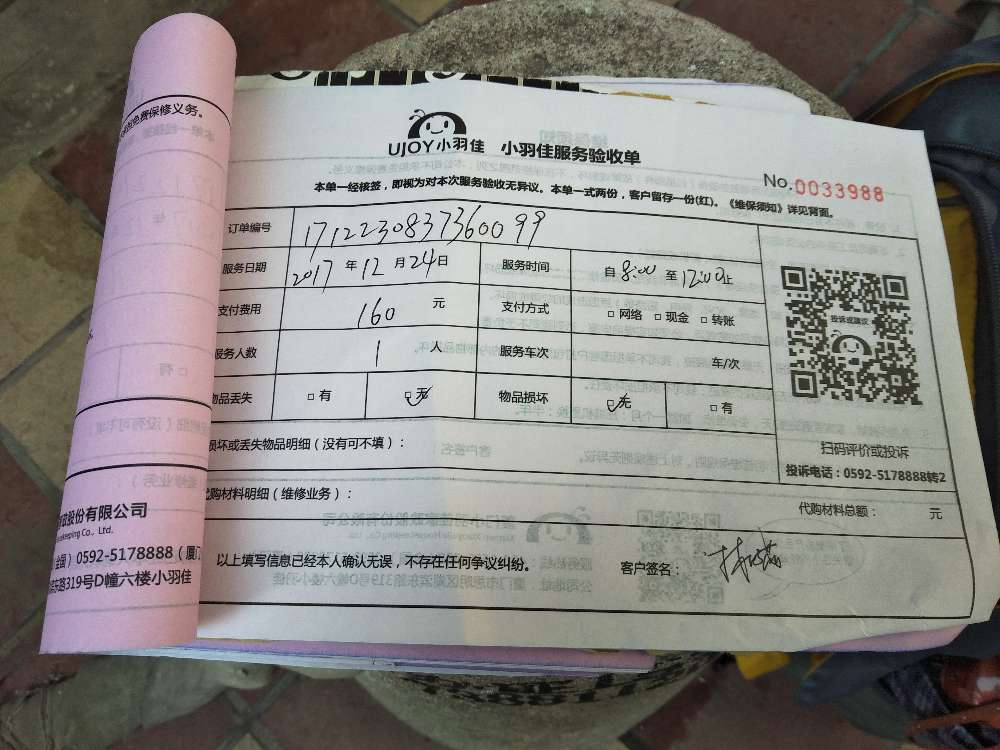 包免费保修义务。
UJOY小羽佳 小羽佳服务验收单
No.0033988
本单一经核签,即视为对本次服务验收无异议。本单一式两份,客户留存一份(红)。《维保须知》详见背面。
订单编号 1712230837360099
服务日期 2017 年 12 月 24 日 服务时间 自 8:00 至 12:00 止
支付费用 160 元 支付方式 □ 网络 □ 现金 □ 转账
服务人数 1 人 服务车次 车/次
物品丢失 □ 有 □ 无 物品损坏 □ 无 □ 有
投诉或建议
扫码评价或投诉
投诉电话:0592-5178888转2
损坏或丢失物品明细(没有可填):
代购材料明细(维修业务): 代购材料总额: 元
以上填写信息已经本人确认无误,不存在任何争议纠纷。 客户签名:
股份有限公司
keeping Co., Ltd.
全国)0592-5178888(厦门
东路319号D幢六楼小羽佳